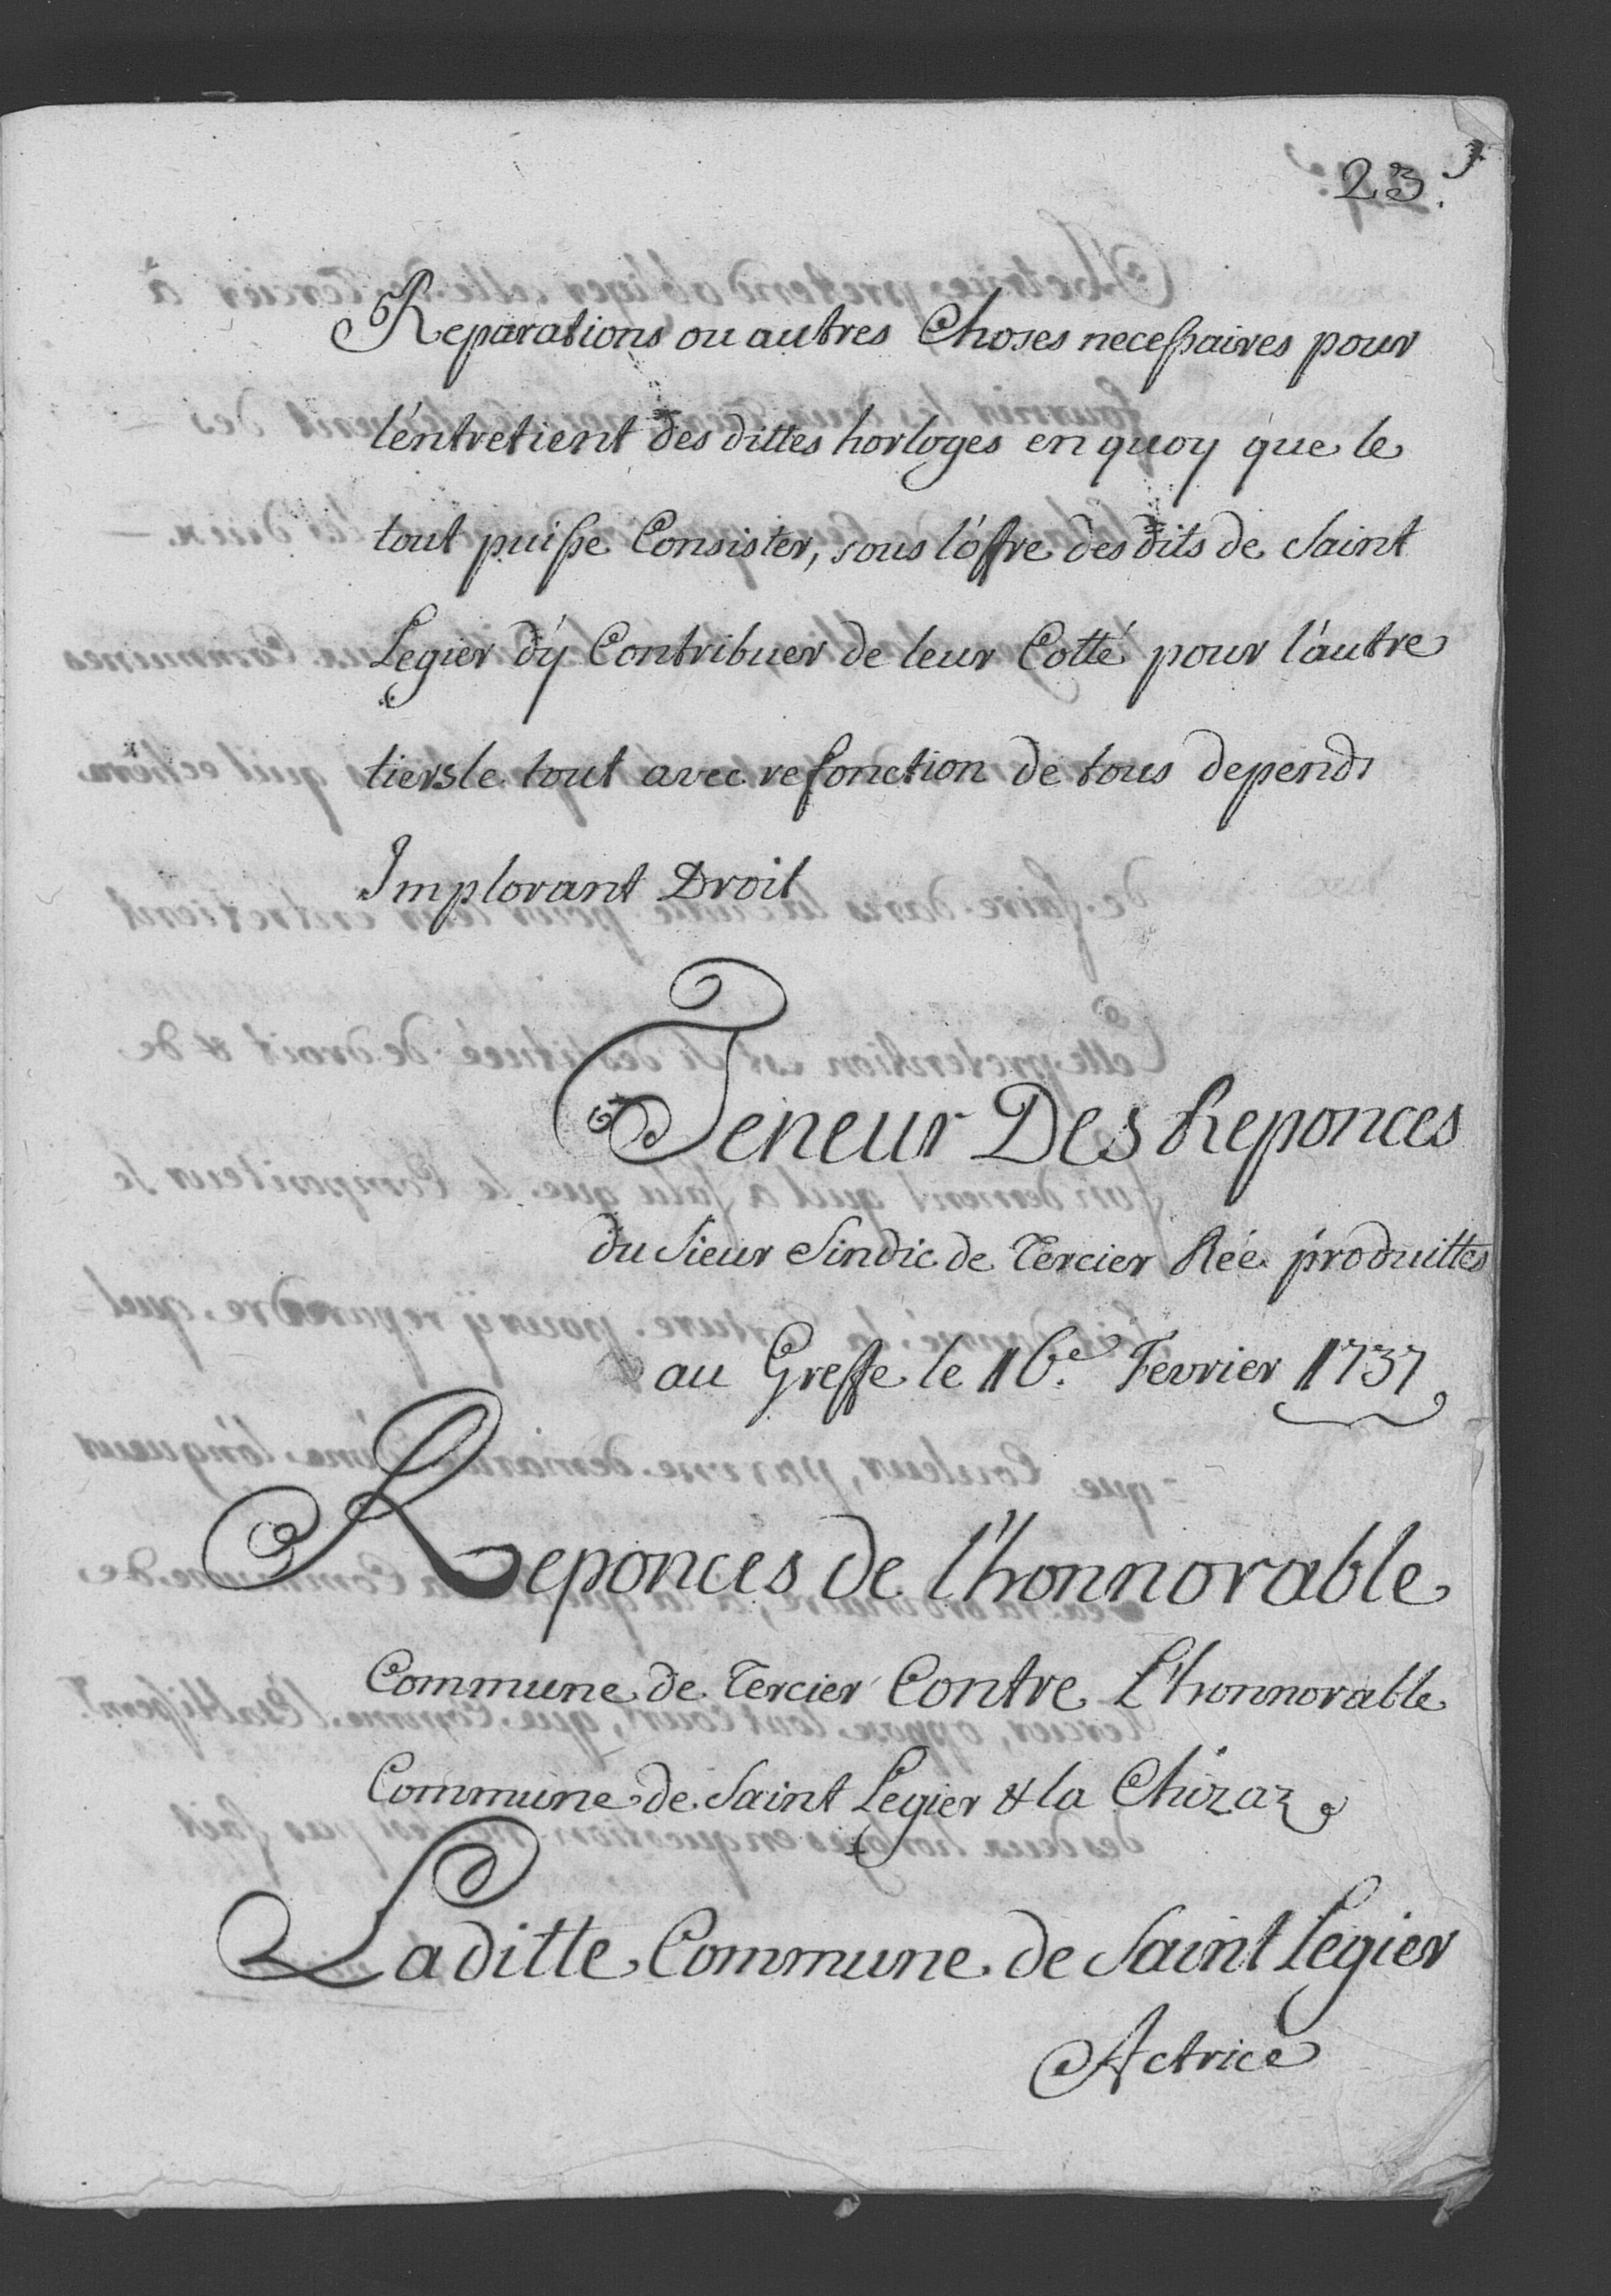 23.
Reparations ou autres Choses necessaires pour
l'éntretient des dittes horloges en quoy que le
tout puisse Consister, sous l'óffre des dits de Saint
Legier d'ÿ Contribuer de leur Cotté pour l'áutre
tiers le tout avec refonction de tous depends
Implorant Droit
Teneur Des Reponces
du Sieur Sindic de Tercier Rée produittes
au Greffe le 16.e Fevrier 1737
Reponces de l'honnorable
Commune de Tercier Contre L'honnorable
Commune de Saint Legier & la Chizaz
Laditte Commune de Saint Legier
Actrice